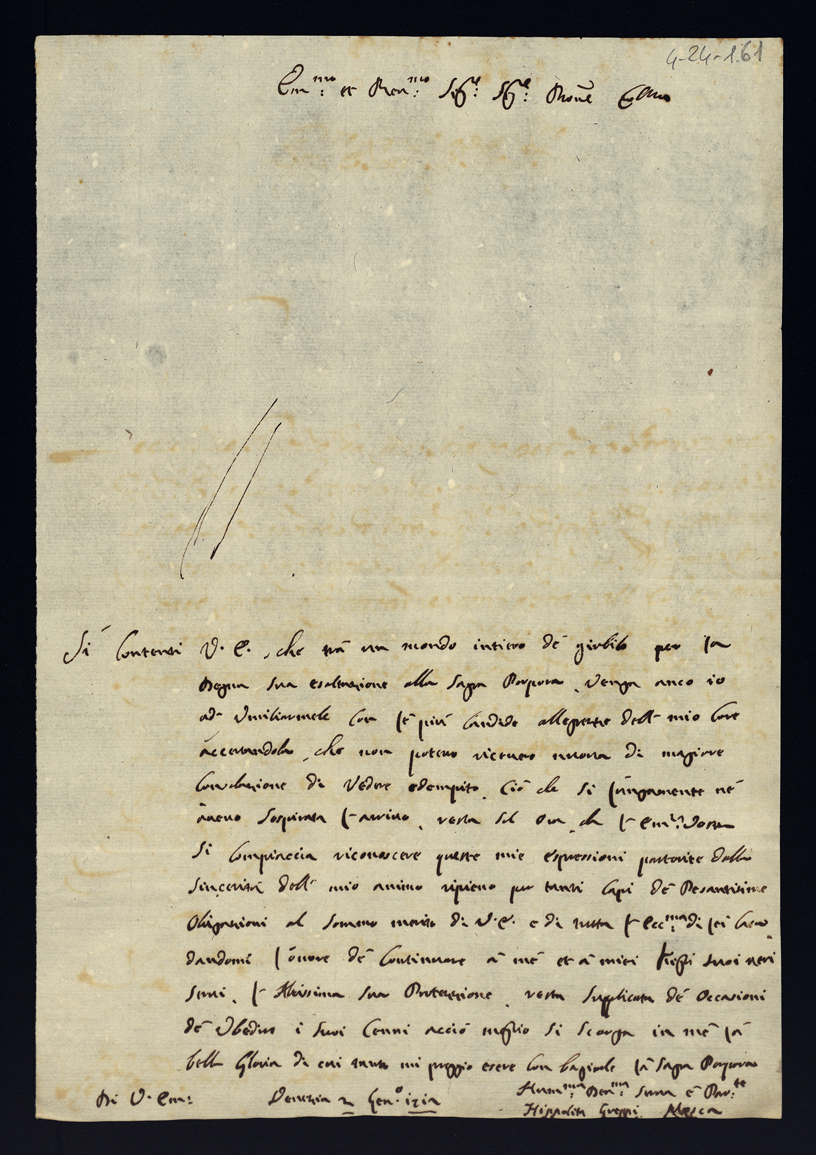 4-24-1.61
Em.mo et Ren.mo Sig.e Sig.e Prone
Si Contenti V. E., che trà un mondo intiero dè giubilo per la
degna sua esaltazione alla Sagra Porpora, venga anco io
ad Umiliarmele con le più candide allegrezze dell mio Core
accertandola, che non potevo ricevere nuova di magiore
Consolazione di Vedere adempito, Ciò che si lungamente nè
avevo Sospirato l'arrivo, resta sol ora, che l'Em.
Si Compiaccia riconoscere queste mie espressioni partorite dalla
Sincerità dell mio animo ripieno per tanti Capi dè Pesantissime
Obligazioni al Sommo merito di V. E. e di tutta l'Ecc.ma di lei Casa
dandomi l'onore dè Continuare à mè et à miei figli suoi veri
Servi, l'Altissima Sua Protezzione, resta Supplicata dè Occasioni
dè Ubedire i suoi Cenni acciò meglio si Scorga in mè la
bella Gloria di cui tanto mi preggio essere con baciarle la Sagra Porpora
Di V. Em: Venezia 2 Gen.o 1712 Hum.ma Dev.ma Serva
Hippolita Mosca